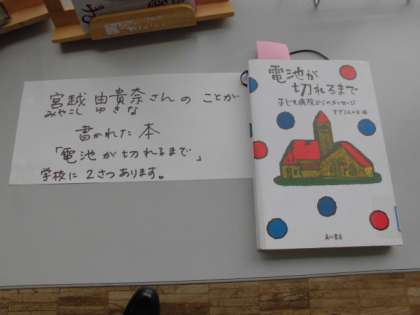 宮越 由貴奈さんの ことが
みやこし ゆきな
書かれた 本
「電池が切れるまで」
学校に 2さつあります。
電池が
切れるまで
子ども病院からのメッセージ
角川書店